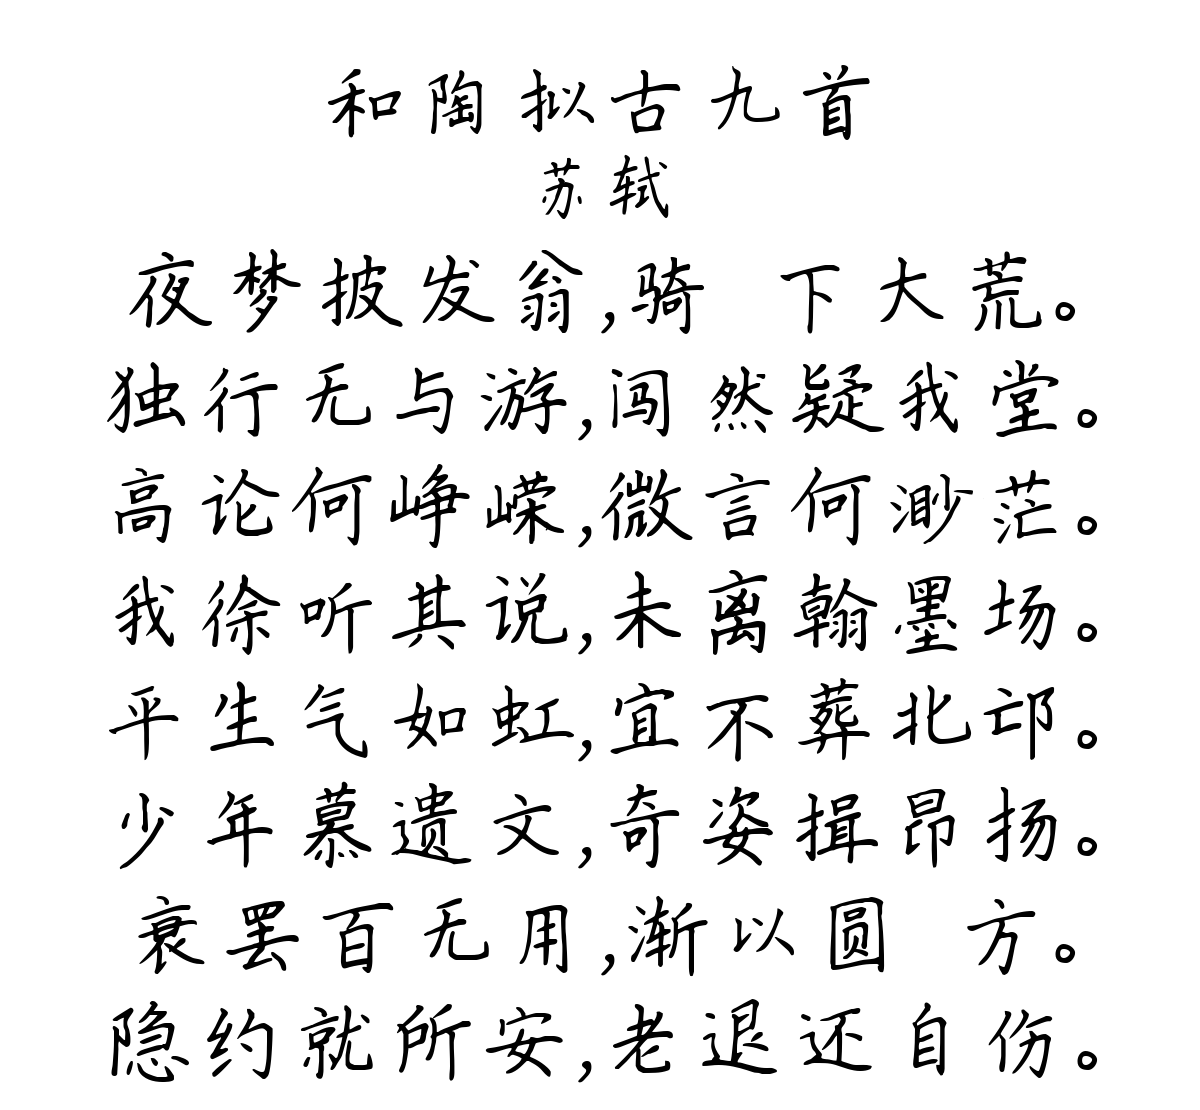 和陶拟古九首
苏轼
夜梦披发翁,骑 下大荒。
独行无与游,闯然疑我堂。
高论何峥嵘,微言何渺茫。
我徐听其说,未离翰墨场。
平生气如虹,宜不葬北邙。
少年慕遗文,奇姿揖昂扬。
衰罢百无用,渐以圆 方。
隐约就所安,老退还自伤。